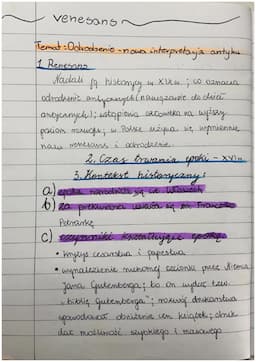 renesans
Temat: Odrodzenie - nowa interpretacja antyku
1. Renesans
Nadali ją historycy w XIX w.; co oznacza
odrodzenie antycznych (nawiązanie do dzieł
antycznych); wstąpienie człowieka na wyższy
poziom rozwoju; w Polsce używa się wymiennie
nazw renesans i odrodzenie.
2. Czas trwania epoki - XVI w.
3. Kontekst historyczny:
a) epoka narodziła się we Włoszech
b) za prekursora uważa się Francesco
Petrarkę
c) czynniki kształtujące epokę
• kryzys cesarstwa i papiestwa
• wynalezienie ruchomej czcionki przez Niemca
Jana Gutenberga; to on wydał tzw.
"biblię Gutenberga"; rozwój drukarstwa
spowodował obniżenie cen książek; druk
dał możliwość szybkiego i masowego